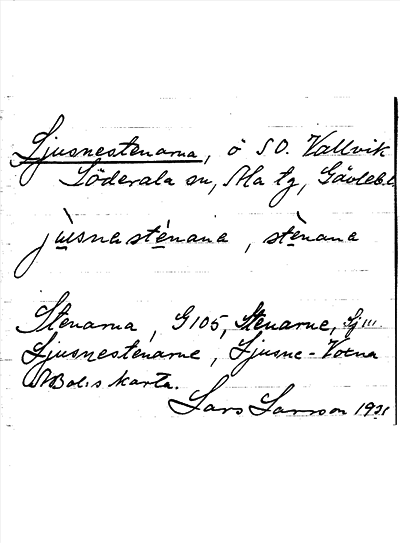 Ljusnestenarna, ö SO. Vallvik
Söderala sn, Ala tg, Gävleb.l.
jʉsnasténana, sténana
Stenarna, G105, Stenarne, Sj III
Ljusnestenarne, Ljusne-Voxna
ABol:s karta.
Lars Larsson 1931